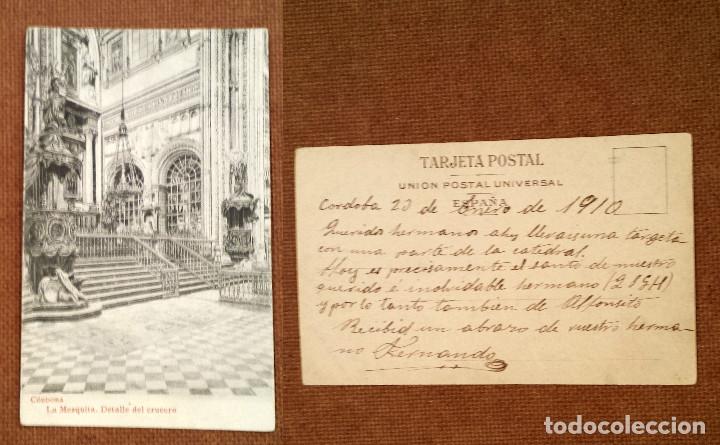 Córdoba
La Mezquita. Detalle del crucero
TARJETA POSTAL
UNION POSTAL UNIVERSAL
ESPAÑA
Cordoba 23 de Enero de 1910
Queridos hermanos ahy llevais una targeta
con una parte de la catedral.
Hoy es precisamente el santo de nuestro
querido é inolvidable hermano
y por lo tanto tambien de Alfonsito
Recibid un abrazo de vuestro herma-
no Fernando
todocoleccion